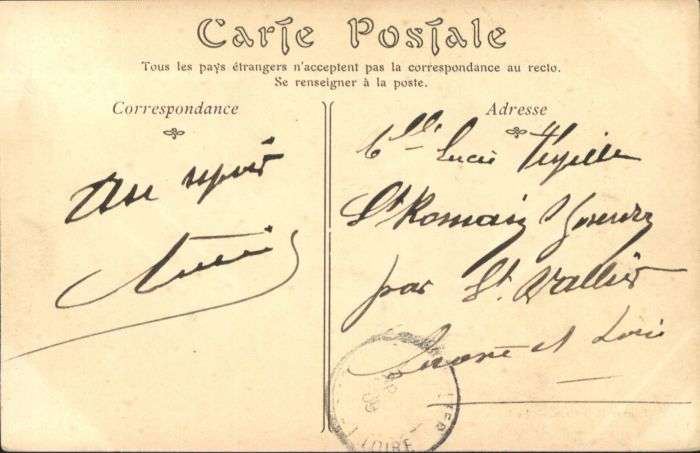 Carte Postale
Tous les pays étrangers n'acceptent pas la correspondance au recto.
Se renseigner à la poste.
Correspondance
Au revoir
Adresse
Mlle Lucie
St Romain
par St. Vallier
Saone et Loire
LOIRE